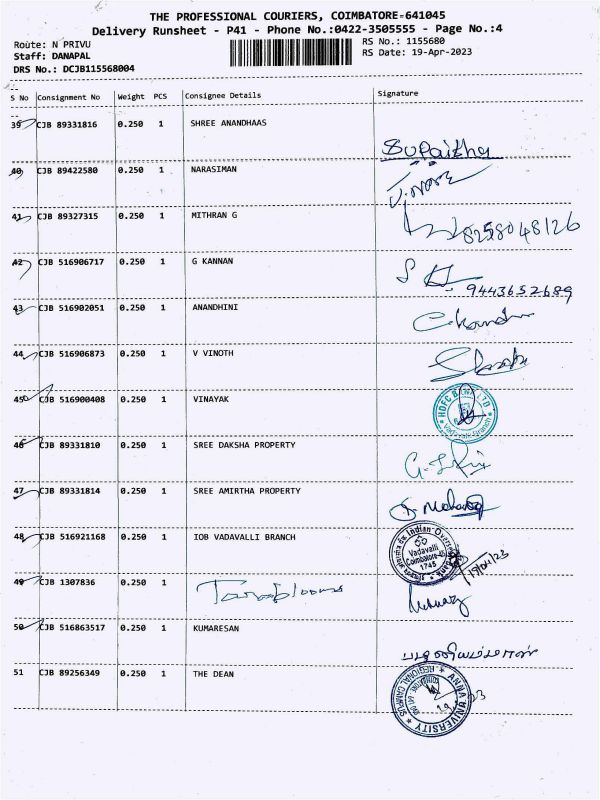 THE PROFESSIONAL COURIERS, COIMBATORE-641045
Delivery Runsheet - P41 - Phone No.:0422-3505555 - Page No.:4
Route: N PRIVU RS No.: 1155680
Staff: DANAPAL RS Date: 19-Apr-2023
DRS No.: DCJB115568004
S No Consignment No Weight PCS Consignee Details Signature
39 CJB 89331816 0.250 1 SHREE ANANDHAAS
40 CJB 89422580 0.250 1 NARASIMAN
41 CJB 89327315 0.250 1 MITHRAN G
8258048126
42 CJB 516906717 0.250 1 G KANNAN
9443652689
43 CJB 516902051 0.250 1 ANANDHINI
44 CJB 516906873 0.250 1 V VINOTH
45 CJB 516900408 0.250 1 VINAYAK
HDFC BANK LTD
46 CJB 89331810 0.250 1 SREE DAKSHA PROPERTY
47 CJB 89331814 0.250 1 SREE AMIRTHA PROPERTY
48 CJB 516921168 0.250 1 IOB VADAVALLI BRANCH
Indian Overseas Bank
Vadavalli
Coimbatore-41
1745
19/04/23
49 CJB 1307836 0.250 1
50 CJB 516863517 0.250 1 KUMARESAN
51 CJB 89256349 0.250 1 THE DEAN
ANNA UNIVERSITY
REGIONAL CAMPUS